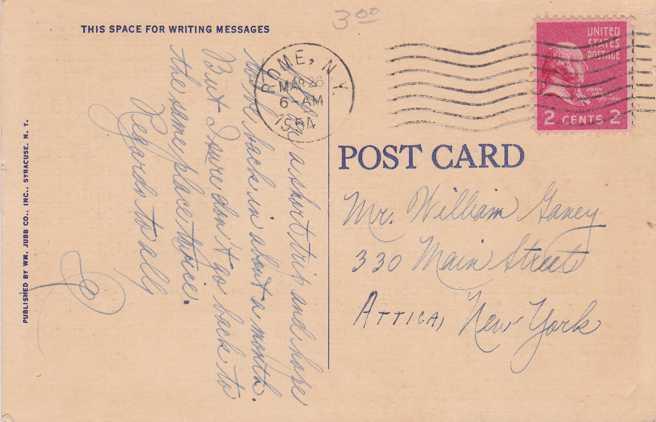 3.00
THIS SPACE FOR WRITING MESSAGES
a short trip and hope
to be back in about a month.
But I sure don't go back to
the same place twice.
Regards to all
PUBLISHED BY WM. JUBB CO., INC., SYRACUSE, N. Y.
ROME, N.Y.
6 AM
UNITED
STATES
POSTAGE
2 CENTS 2
POST CARD
Mr. William Ganey
330 Main Street
ATTICA, New York